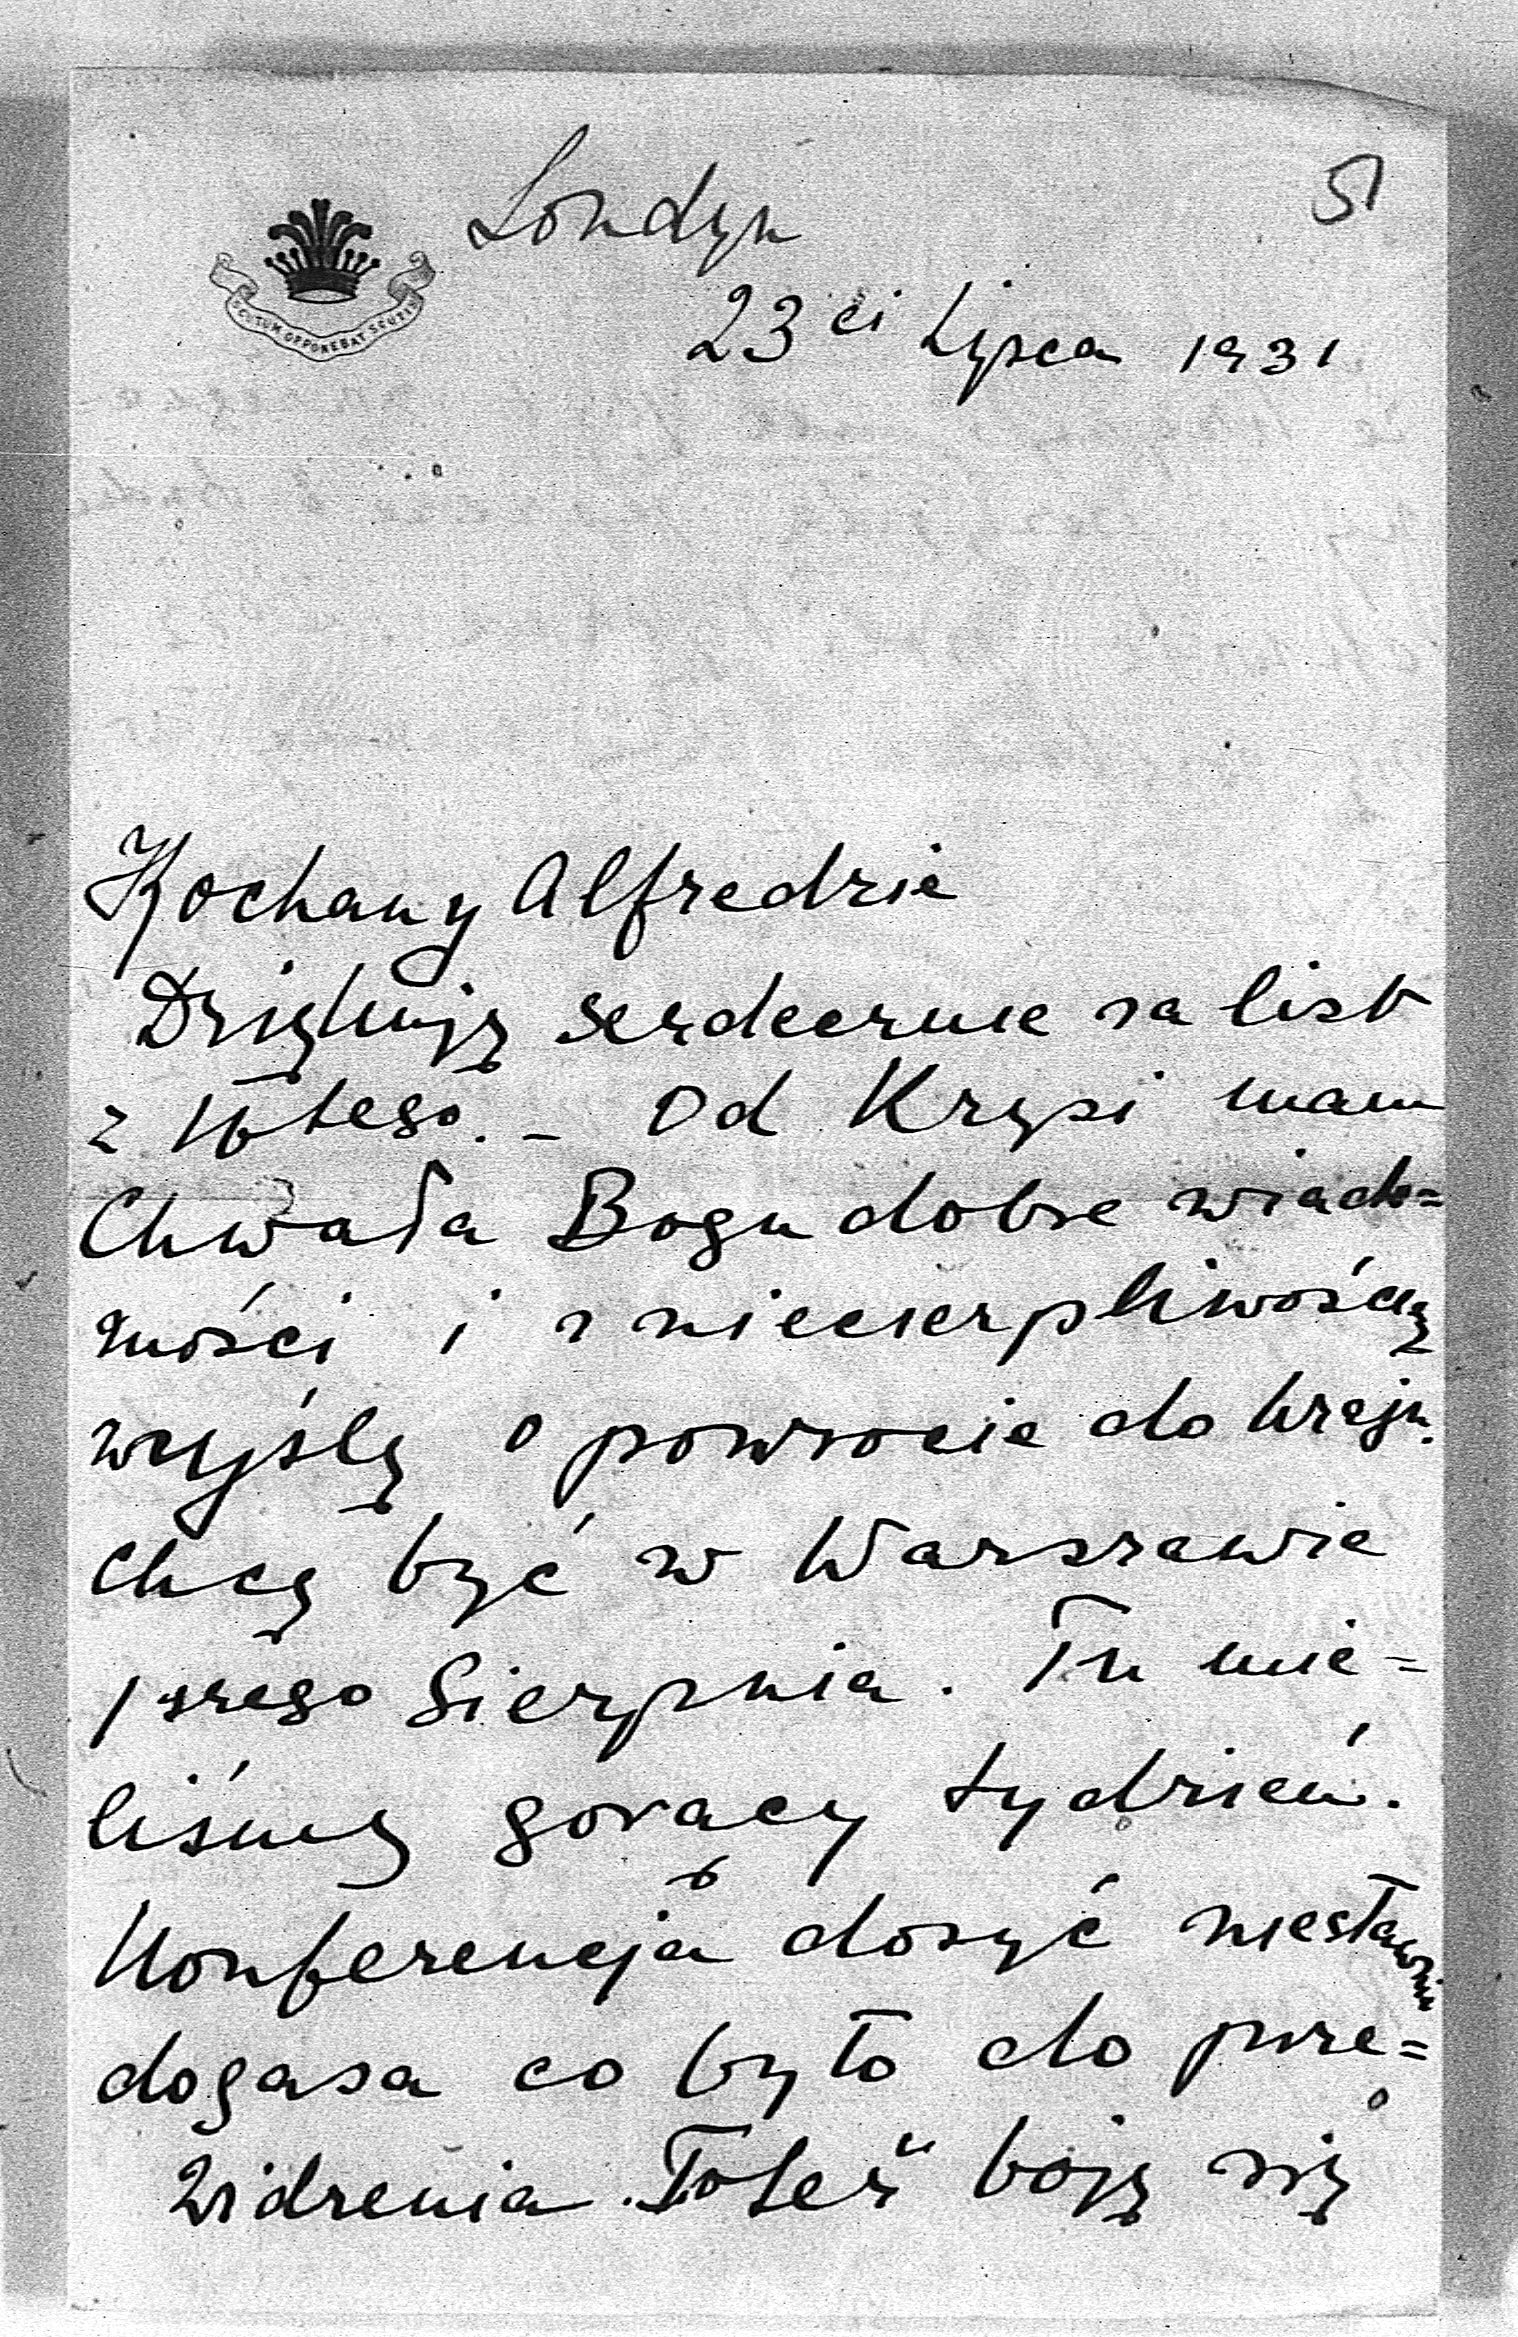 51
Londyn
SCUTUM OPPONEBAT SCUTIS
23ci Lipca 1931
Kochany Alfredzie
Dziękuję serdecznie za list
z 16tego. – Od Krysi mam
Chwała Bogu dobre wiado=
mości i z niecierpliwością
myślę o powrocie do kraju.
Chcę być w Warszawie
1szego Sierpnia. Tu mie=
liśmy gorący tydzień.
Konferencja dosyć niesławnie
dogasa co było do prze=
widzenia. Toteż boję się